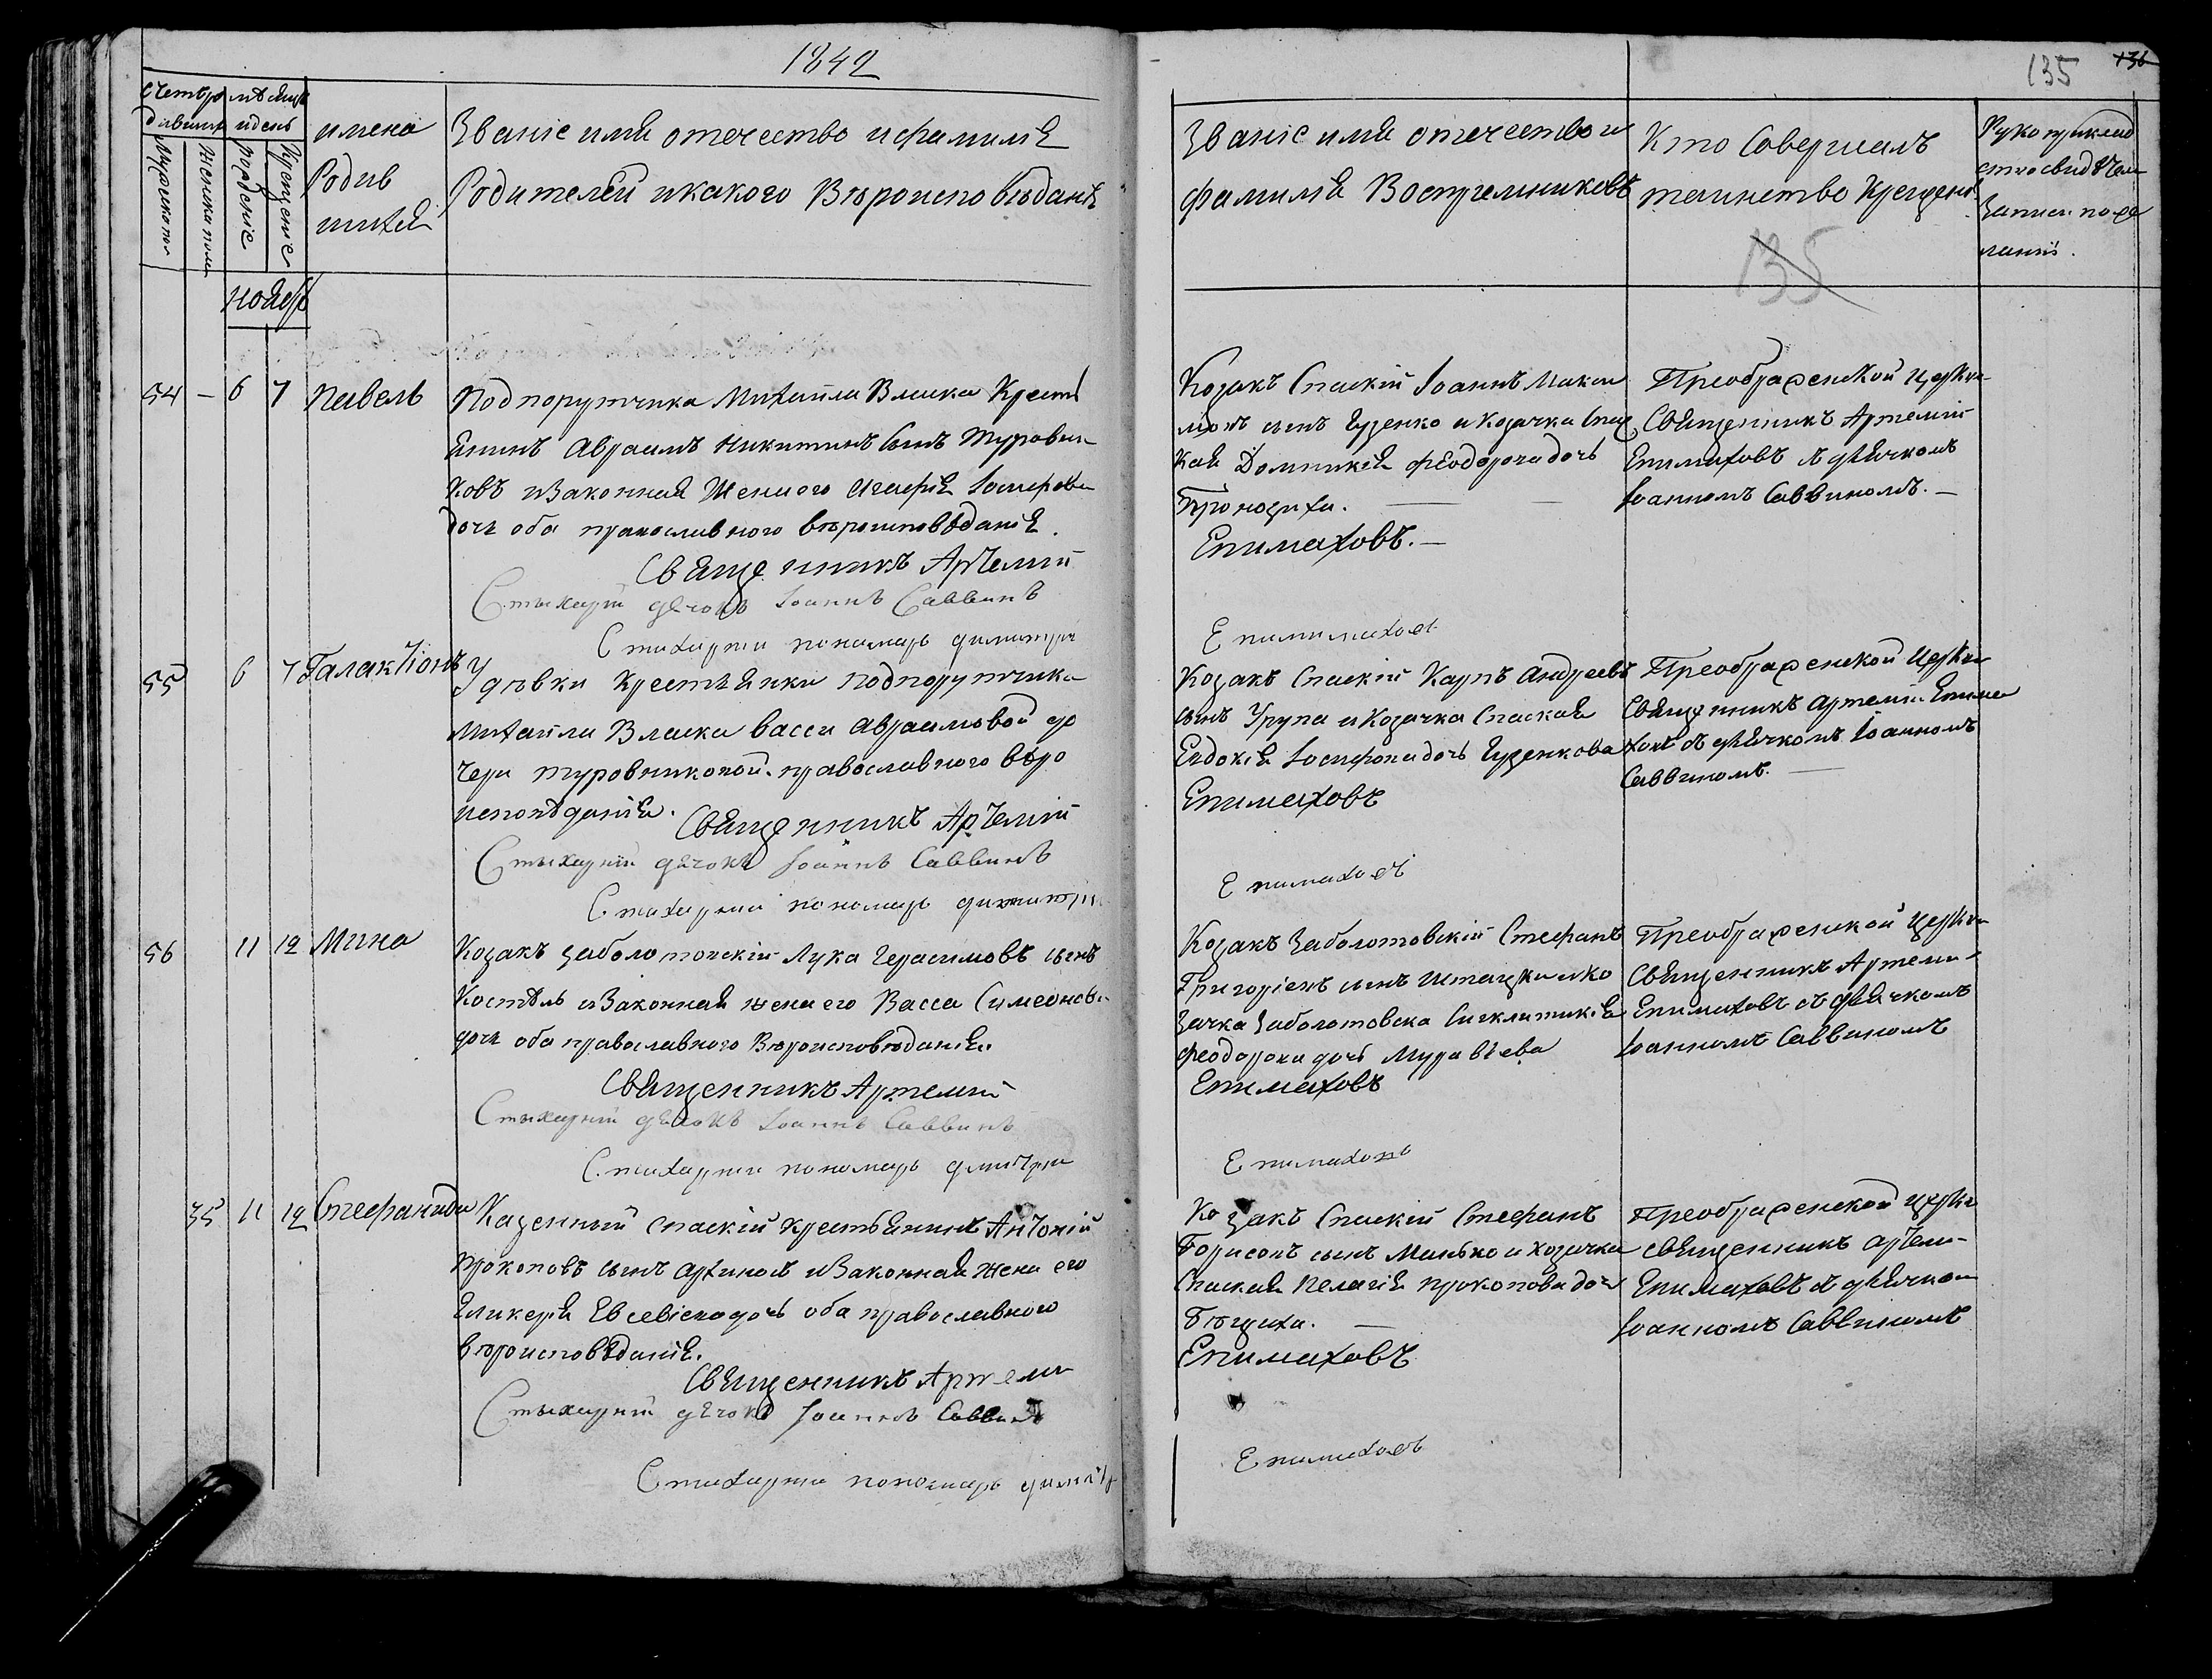 1842
135 136
Счетъ ро мѣсяцъ
дившир идень
Мужеска пол
Женска пола
рожденіе
Крещеніе
имена
Родив
шихся
Званіе имя отечество и фамилія
Родителей и какого Вѣроисповѣданія
Званіе имя отечество и
фамилія Воспремниковъ
Кто Совершалъ
таинство Крещенія
Рукоприклад
ство свидѣтел
записи по же
ланію.
135
Ноября
54 — 6 7 Павелъ
Подпорутчика Михаила Власка Кресть
янинъ Авраамъ Никитинъ сынъ Туровни
ковъ и Законная Жена его Агафія Іосифова
дочь оба православного вѣроисповѣданія.
Священникъ Артемий
Стыхарній дячокъ Іоаннъ Саввинъ
Стихарни пономарь димитри
Козакъ Спаскій Іоаннъ Макси
мовъ сынъ Гуденко и Козачка Спас
кая Домникія Феодорова дочь
Епимаховъ.—
Епимаховъ
Преображенской церкви
Священникъ Артемій
Епимаховъ съ дьячкомъ
Іоанномъ Саввиномъ.—
55 6 7 Галактіонъ
У дѣвки крестьянки подпорутчика
Михаила Власка Васси Авраамовой до
чери Туровниковой православного вѣро
исповѣданія.
Священникъ Артемій
Стыхарній дячокъ Іоаннъ Саввинъ
Стихарни пономарь димитри
Козакъ Спаскій Карпъ Андреевъ
сынъ Урупа и Козачка Спаская
Евдокія Іосифова дочь Гуденкова
Епимаховъ
Епимаховъ
Преображенской церкви
Священникъ Артемій Епима
ховъ съ дьячкомъ Іоанномъ
Саввиномъ.—
56 11 12 Мина
Козакъ Заболотовскій Лука Герасимовъ сынъ
Костѣль и Законная жена его Васса Симеонова
дочь оба православного Вѣроисповѣданія.
Священникъ Артемий
Стыхарній дячокъ Іоаннъ Саввинъ
Стихарни пономарь дмитри
Козакъ Заболотовскій Стефанъ
Григоріевъ сынъ и ко
зачка Заболотовска Сигклитикія
Феодорова дочь Муравіева
Епимаховъ
Епимаховъ
Преображенской церкви
Священникъ Артеми
Епимаховъ съ дьячкомъ
Іоанномъ Саввиномъ
35 11 12 Стефанида
Казенный Спаскій крестьянинъ Антоній
Прокоповъ сынъ и Законная Жена его
Гликерія Евсевіева дочь оба православного
вѣроисповѣданія.
Священникъ Артеми
Стыхарній дячокъ Іоаннъ Саввинъ
Стихарни пономарь димитр
Козакъ Спаскій Стефанъ
Борисовъ сынъ Манько и козачка
Спаская Пелагія Прокопова дочь
Епимаховъ
Епимаховъ
Преображенской церкви
священникъ Артеми
Епимаховъ съ дьячком
Іоанномъ Саввиномъ